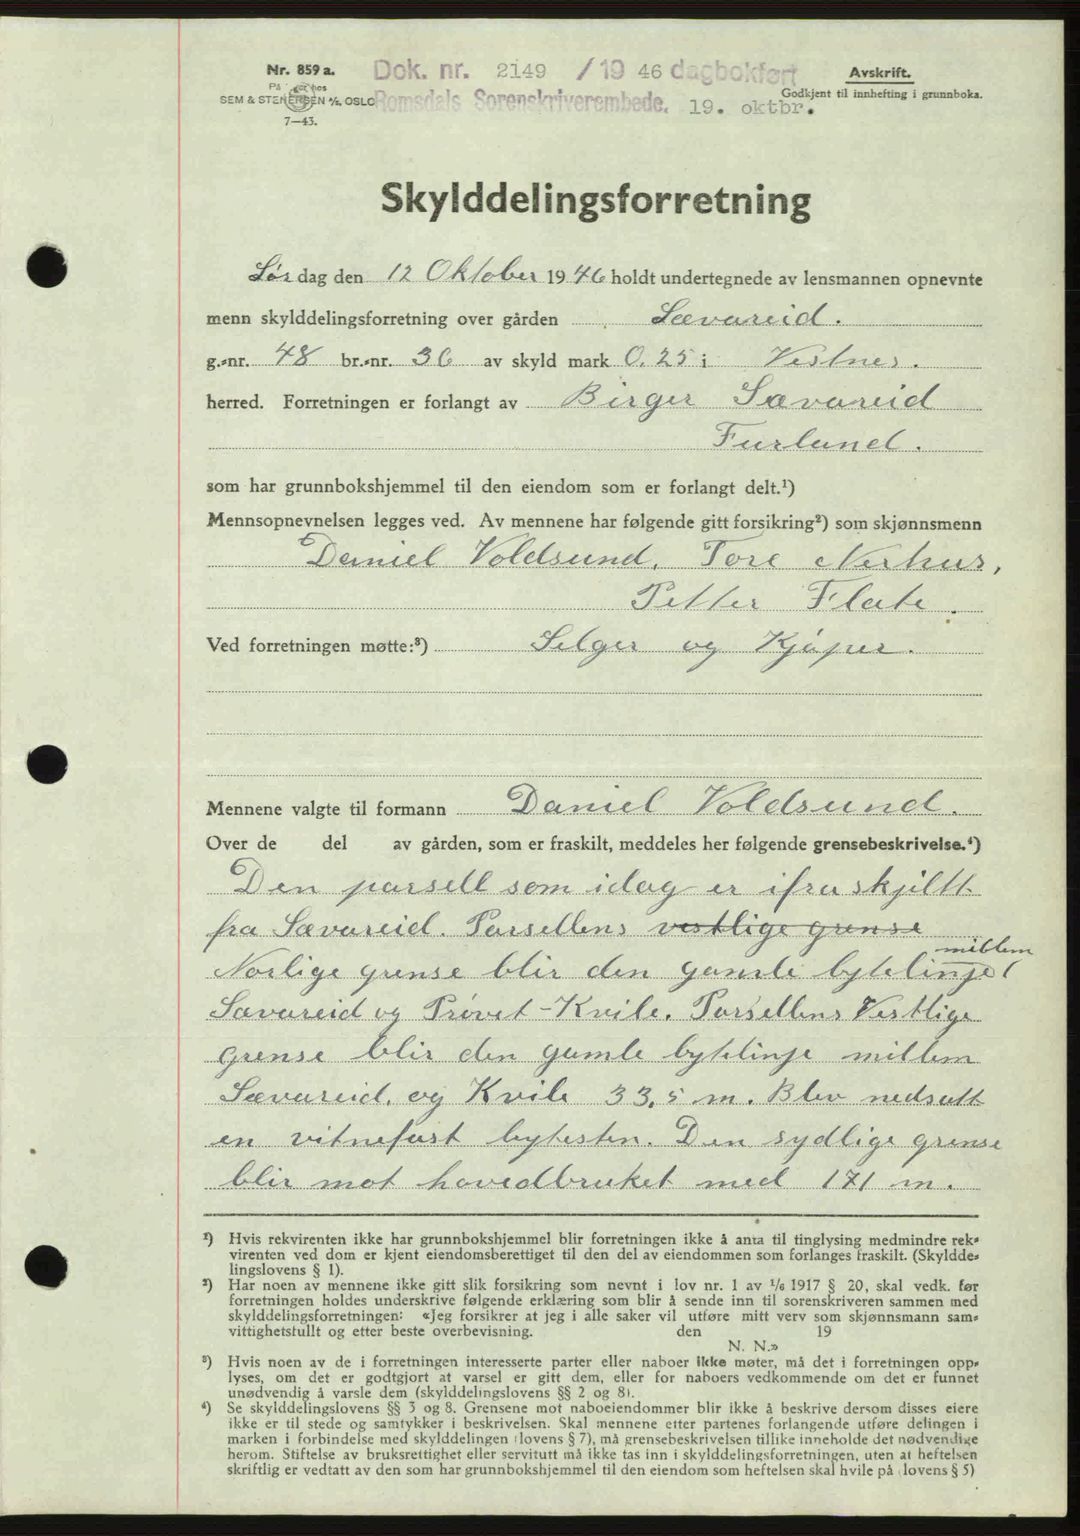 Nr. 859 a.
Dok. nr. 2149 / 19 46 dagbokført
Avskrift.
SEM & STENERSEN A/S, OSLO
Romsdals Sorenskriverembede. 19. oktbr.
Godkjent til innhefting i grunnboka.
7—43.
Skylddelingsforretning
Lørdag den 12 Oktober 1946 holdt undertegnede av lensmannen opnevnte
menn skylddelingsforretning over gården Sævareid.
g.-nr. 48 br.-nr. 36 av skyld mark 0.25 i Vestnes.
herred. Forretningen er forlangt av Birger Sævareid
Furlund.
som har grunnbokshjemmel til den eiendom som er forlangt delt.¹)
Mennsopnevnelsen legges ved. Av mennene har følgende gitt forsikring²) som skjønnsmenn
Daniel Voldsund, Tore Nerhus,
Petter Flate.
Ved forretningen møtte:³) Selger og Kjøper.
Mennene valgte til formann Daniel Voldsund.
Over de del av gården, som er fraskilt, meddeles her følgende grensebeskrivelse.⁴)
Den parsell som idag er ifra skjiltt
fra Sævareid. Parsellens vestlige grense
Norlige grense blir den gamle bytelinje millem
Sævareid og Prøvet-Kvile. Parsellens Vestlige
grense blir den gamle bytelinje millem
Sævareid, og Kvile 33,5 m. Blev nedsatt
en vitnefast bytesten. Den sydlige grense
blir mot hovedbruket med 171 m.
¹) Hvis rekvirenten ikke har grunnbokshjemmel blir forretningen ikke å anta til tinglysing medmindre rek-
virenten ved dom er kjent eiendomsberettiget til den del av eiendommen som forlanges fraskilt. (Skyldde-
lingslovens § 1).
²) Har noen av mennene ikke gitt slik forsikring som nevnt i lov nr. 1 av 1/6 1917 § 20, skal vedk. før
forretningen holdes underskrive følgende erklæring som blir å sende inn til sorenskriveren sammen med
skylddelingsforretningen: «Jeg forsikrer at jeg i alle saker vil utføre mitt verv som skjønnsmann sam-
vittighetstullt og etter beste overbevisning. den 19
N. N.»
³) Hvis noen av de i forretningen interesserte parter eller naboer ikke møter, må det i forretningen opp-
lyses, om det er godtgjort at varsel er gitt dem, eller for naboers vedkommende om det er funnet
unødvendig å varsle dem (skylddelingslovens §§ 2 og 8).
⁴) Se skylddelingslovens §§ 3 og 8. Grensene mot naboeiendommer blir ikke å beskrive dersom disses eiere
ikke er til stede og samtykker i beskrivelsen. Skal mennene etter partenes forlangende utføre delingen i
marken i forbindelse med skylddelingen (lovens § 7), må grensebeskrivelsen tillike inneholde det nødvendige
herom. Stiftelse av bruksrettighet eller servitutt må ikke tas inn i skylddelingsforretningen, uten at heftelsen
skriftlig er vedtatt av den som har grunnbokshjemmel til den eiendom som heftelsen skal hvile på (lovens § 5)